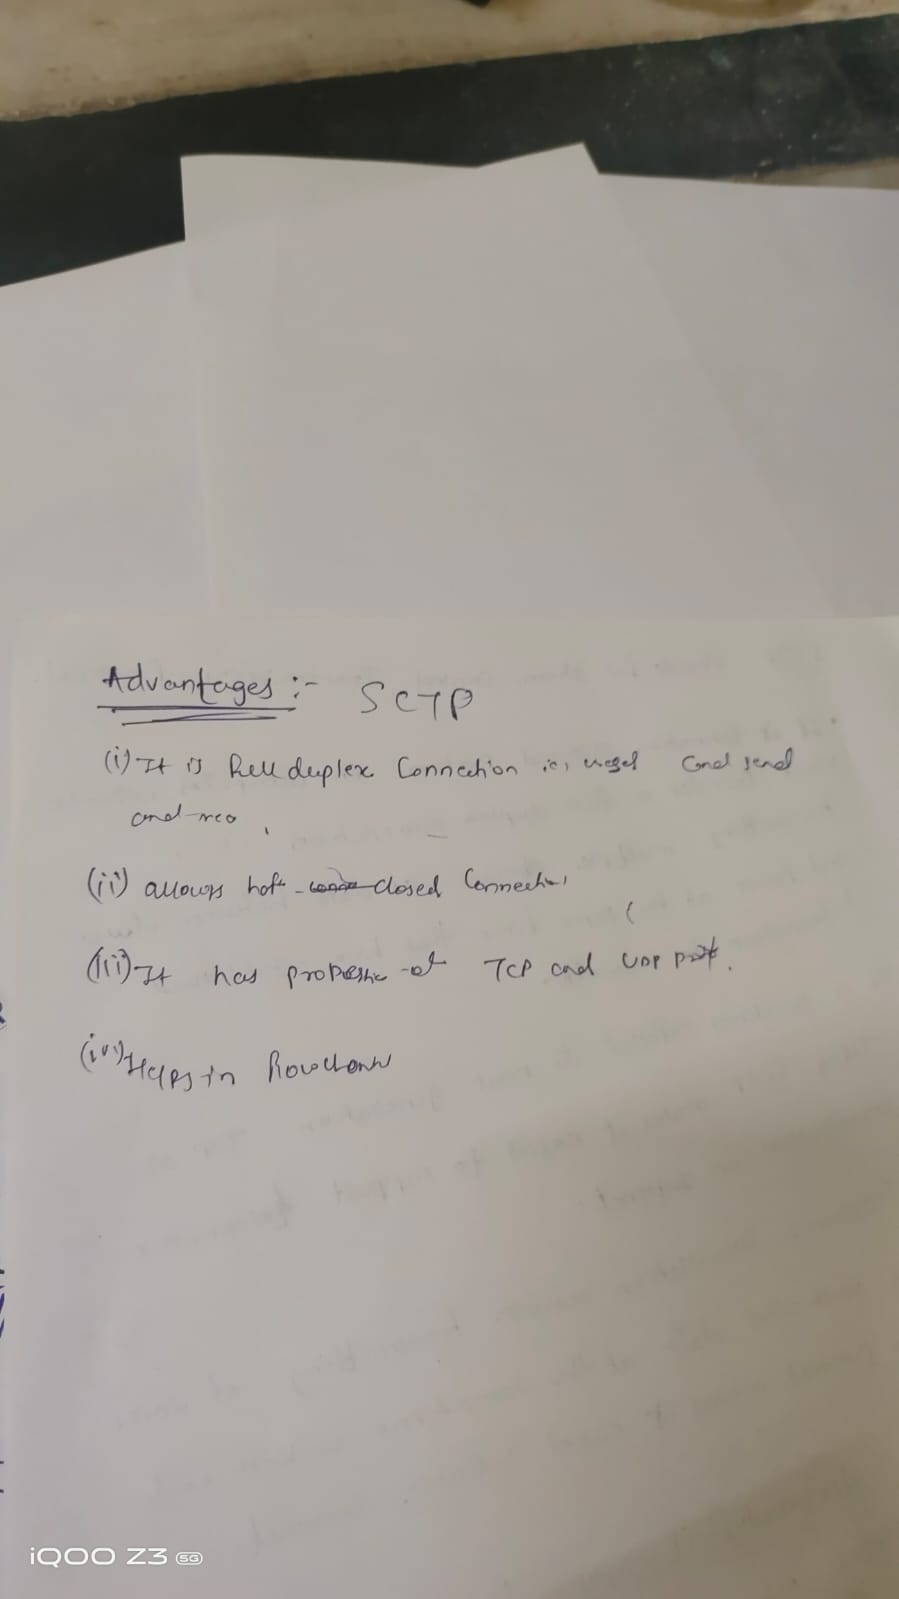 Advantages :- SCTP
(i) It is full duplex Connection i.e, and send
and rec
(ii) allows half closed Connection
(iii) It has of TCP and UDP
(iv) Helps in
iQOO Z3 5G